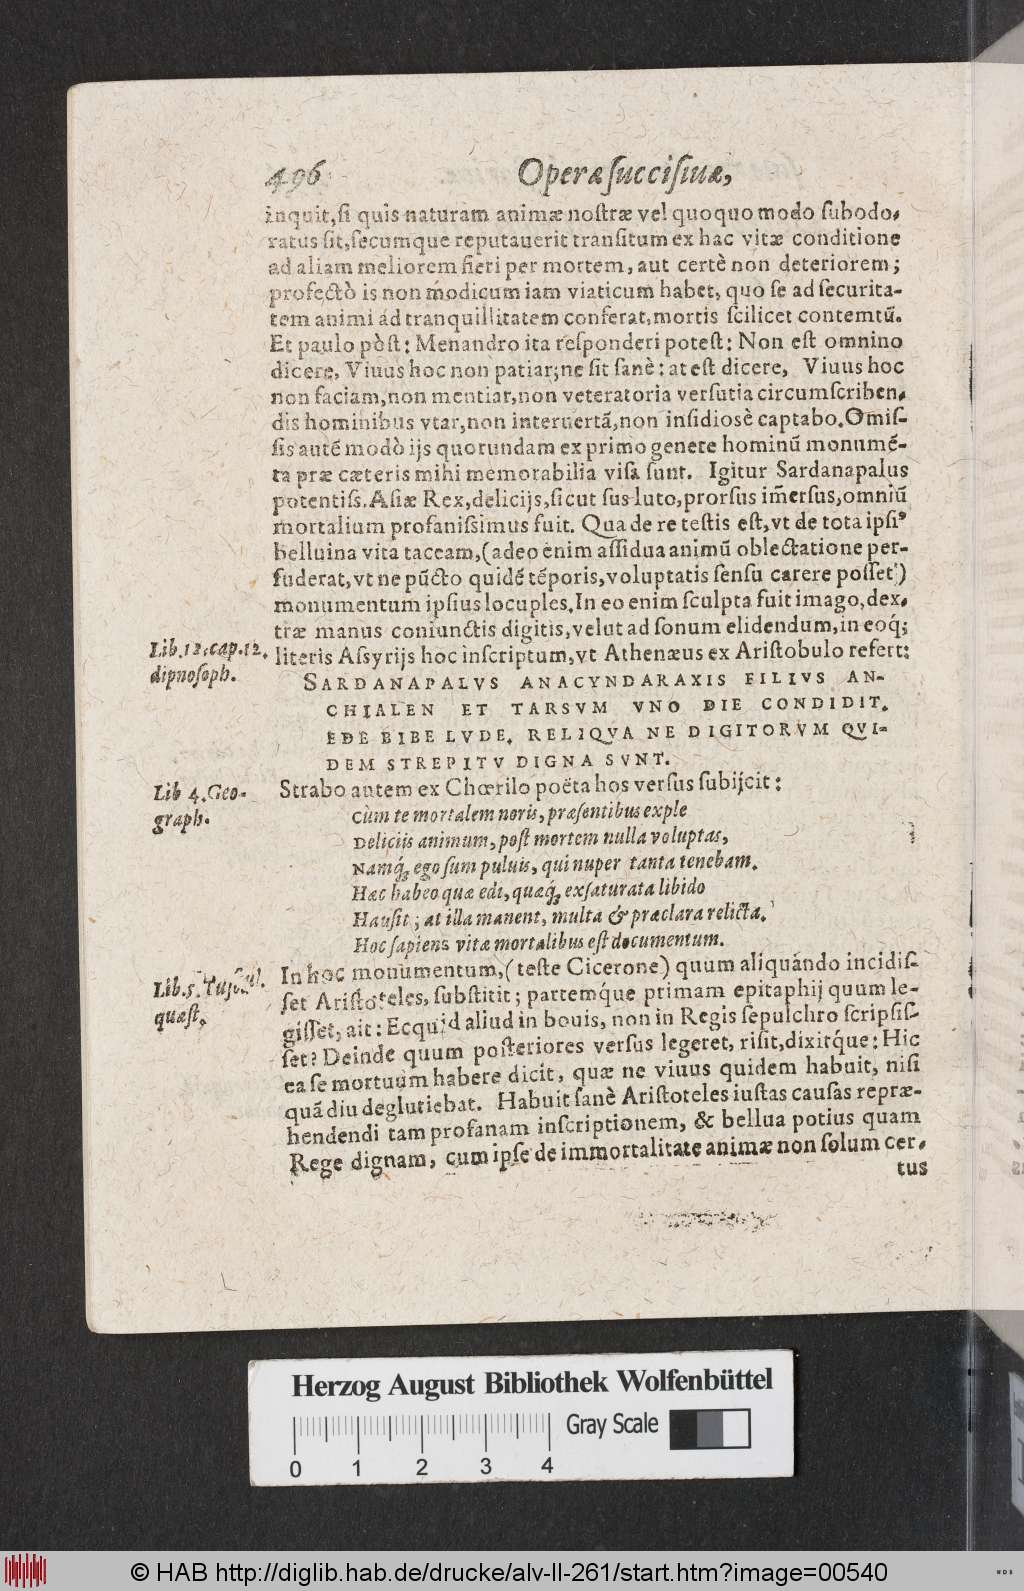 496 Operæ ſucciſiuæ,
inquit, ſi quis naturam animæ noſtræ vel quoquo modo ſubodo-
ratus ſit, ſecumque reputauerit tranſitum ex hac vitæ conditione
ad aliam meliorem fieri per mortem, aut certè non deteriorem;
profectò is non modicum iam viaticum habet, quo ſe ad ſecurita-
tem animi ad tranquillitatem conferat, mortis ſcilicet contemtũ.
Et paulo pòſt: Menandro ita reſponderi poteſt: Non eſt omnino
dicere, Viuus hoc non patiar; ne ſit ſanè: at eſt dicere, Viuus hoc
non faciam, non mentiar, non veteratoria verſutia circumſcriben-
dis hominibus vtar, non interuertã, non inſidiosè captabo. Omiſ-
ſis autẽ modò ijs quorundam ex primo genere hominũ monumẽ-
ta præ cæteris mihi memorabilia viſa ſunt. Igitur Sardanapalus
potentiſs. Aſiæ Rex, delicijs, ſicut ſus luto, prorſus im̃erſus, omniũ
mortalium profaniſsimus fuit. Qua de re teſtis eſt, vt de tota ipſiꝰ
belluina vita taceam, (adeo enim aſſidua animũ oblectatione per-
fuderat, vt ne pũcto quidẽ tẽporis, voluptatis ſenſu carere poſſet)
monumentum ipſius locuples. In eo enim ſculpta fuit imago, dex-
træ manus coniunctis digitis, velut ad ſonum elidendum, in eoq́;
Lib. 12. cap. 12.
dipnoſoph.
literis Aſsyrijs hoc inſcriptum, vt Athenæus ex Ariſtobulo refert:
SARDANAPALVS ANACYNDARAXIS FILIVS AN-
CHIALEN ET TARSVM VNO DIE CONDIDIT.
EDE BIBE LVDE. RELIQVA NE DIGITORVM QVI-
DEM STREPITV DIGNA SVNT.
Lib 4. Geo-
graph.
Strabo autem ex Chœrilo poëta hos verſus ſubijcit:
Cùm te mortalem noris, præſentibus exple
Deliciis animum, poſt mortem nulla voluptas,
Namq́; ego ſum puluis, qui nuper tanta tenebam.
Hæc habeo quæ edi, quæq́; exſaturata libido
Hauſit; at illa manent, multa & præclara relicta.
Hoc ſapiens vitæ mortalibus eſt documentum.
Lib. 5. Tuſcul.
quæſt.
In hoc monumentum, (teſte Cicerone) quum aliquando incidiſ-
ſet Ariſtoteles, ſubſtitit; partemq́ue primam epitaphij quum le-
giſſet, ait: Ecquid aliud in bouis, non in Regis ſepulchro ſcripſiſ-
ſet? Deinde quum poſteriores verſus legeret, riſit, dixitq́ue: Hic
ea ſe mortuum habere dicit, quæ ne viuus quidem habuit, niſi
quã diu deglutiebat. Habuit ſanè Ariſtoteles iuſtas cauſas repræ-
hendendi tam profanam inſcriptionem, & bellua potius quam
Rege dignam, cum ipſe de immortalitate animæ non ſolum cer-
tus
Herzog August Bibliothek Wolfenbüttel
Gray Scale
0 1 2 3 4
© HAB http://diglib.hab.de/drucke/alv-ll-261/start.htm?image=00540